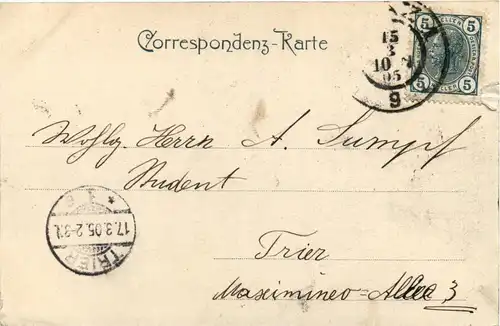 Correspondenz-Karte
5 5
5 5
15
3
10
05
9
Wohlg. Herrn A. Sumpf
Student
Trier
Maximineo-Allee 3
TRIER
17.3.05.2-3N.
* 1 e